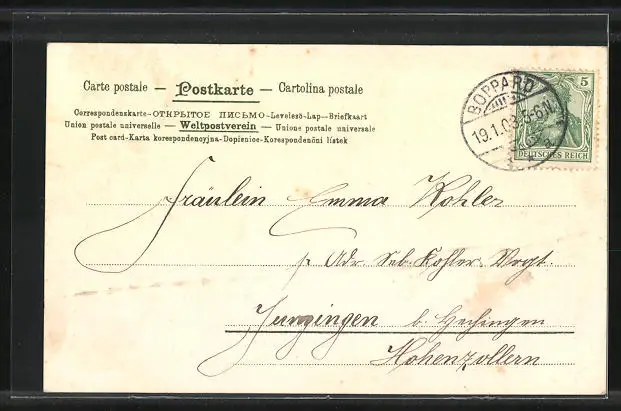 Carte postale — Postkarte — Cartolina postale
Correspondenzkarte-ОТКРЫТОЕ ПИСЬМО-Levelező-Lap-Briefkaart
Union postale universelle — Weltpostverein — Unione postale universale
Post card-Karta korespondencyjna-Dopisnice-Korespondenčni listek
BOPPARD
19.1.03. 5-6 N.
5
DEUTSCHES REICH
Fräulein Emma Kohler
Adr. Seb. Kohler, Vogt.
Jungingen b. Hechingen
Hohenzollern